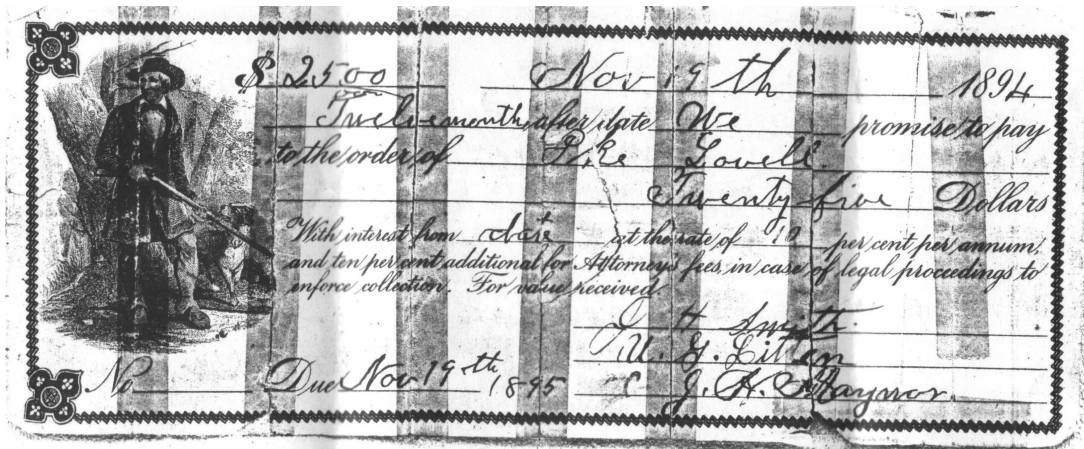 $ 25 00 Nov 19 th 1894
Twelve month after date We promise to pay
to the order of Pike Lovell
Twenty five Dollars
With interest from date at the rate of 10 per cent per annum,
and ten per cent additional for Attorney's fees, in case of legal proceedings to
enforce collection. For value received.
H Smyth
U. G.
No Due Nov 19 th 1895 J. H. Maynor.